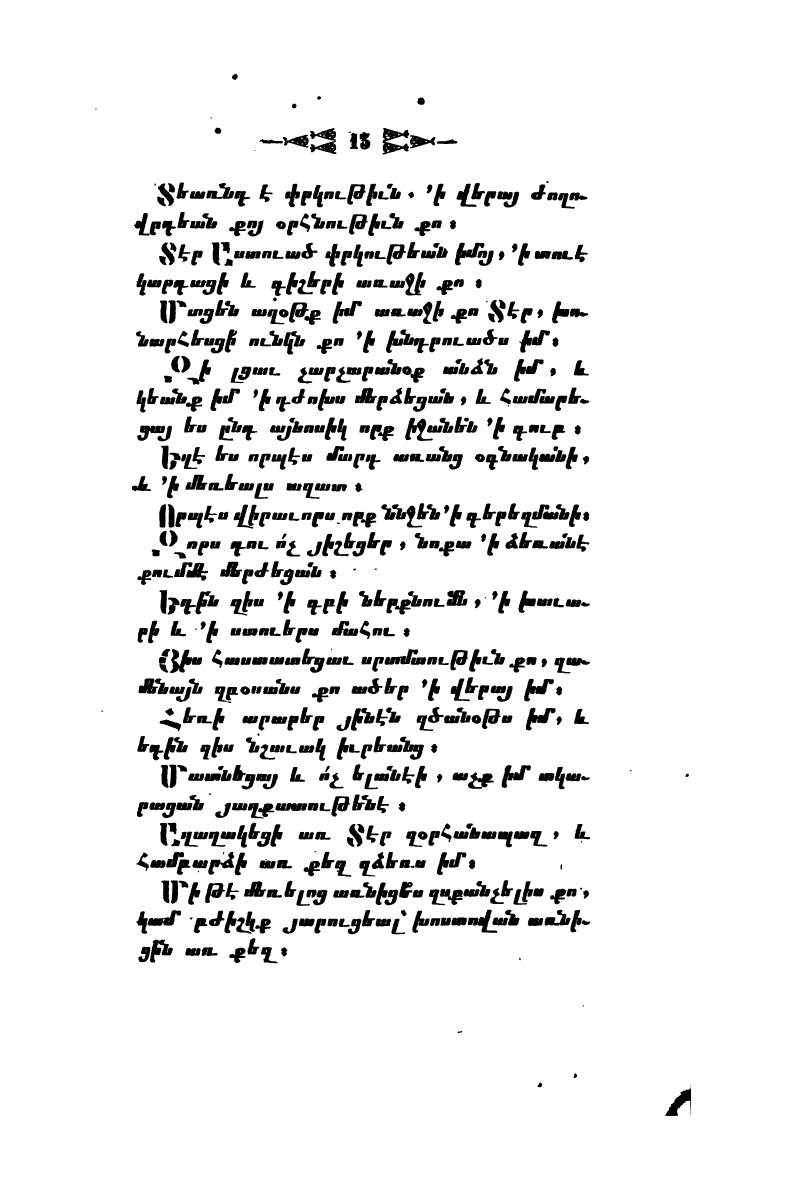 13
Տեառնդ է փրկութիւն. ՛ի վերայ ժողո֊
վրդեան քոյ օրհնութիւն քո ։
Տէր Աստուած փրկութեան իմոյ, ՛ի տուէ
կարդացի և գիշերի առաջի քո ։
Մտցեն աղօթք իմ առաջի քո Տէր, խո֊
նարհեսցի՛ ունկն քո ՛ի խնդրուածս իմ։
Զի լցաւ չարչարանօք անձն իմ, և
կեանք իմ ՛ի դժոխս մերձեցան, և համարե֊
ցայ ես ընդ այնոսիկ որք իջանեն ՛ի գուբ ։
Եղէ ես որպէս մարդ առանց օգնականի,
և ՛ի մեռեալս ազատ ։
Որպէս վիրաւորս որք ննջեն ՛ի գերեզմանի։
Զորս դու ո՛չ յիշեցեր, նոքա ՛ի ձեռանէ
քումմէ մերժեցան ։
Եդին զիս ՛ի գբի ներքնումն, ՛ի խաւա֊
րի և ՛ի ստուերս մահու ։
Յիս հաստատեցաւ սրտմտութիւն քո, զա֊
մենայն զբօսանս քո ածեր ՛ի վերայ իմ։
Հեռի արարեր յինէն զծանօթս իմ, և
եդին զիս նշաւակ իւրեանց ։
Մատնեցայ և ո՛չ ելանէի, աչք իմ տկա֊
րացան յաղքատութենէ ։
Աղաղակեցի առ Տէր զօրհանապազ, և
համբարձի առ քեզ զձեռս իմ։
Մի թէ մեռելոց առնիցես զսքանչելիս քո,
կամ բժիշկք յարուցեալ՝ խոստովան առնի֊
ցին առ քեզ ։